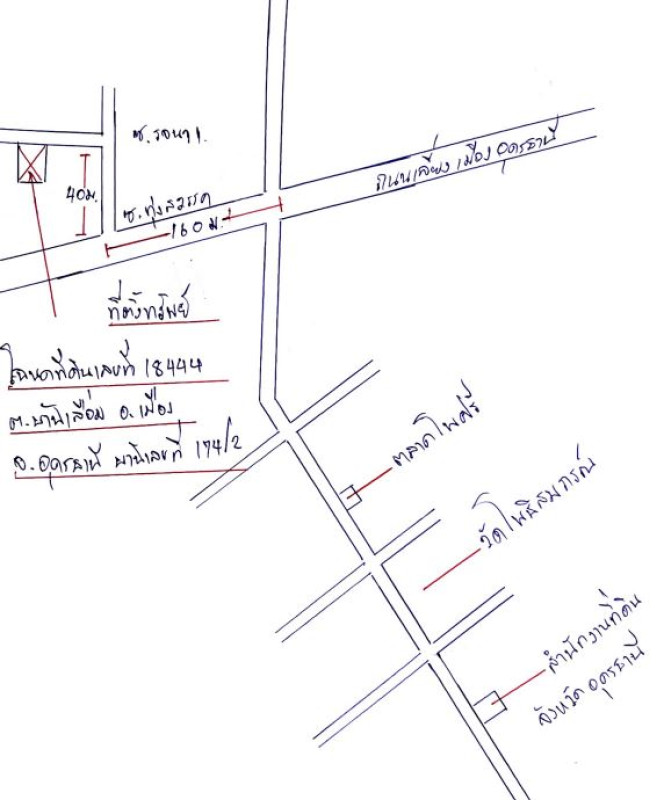 ซ.รอนา 1.
ถนนเลี่ยงเมืองอุดรธานี
40ม.
ซ.ทุ่งสวรรค์
160 ม.
ที่ตั้งทรัพย์
โฉนดที่ดินเลขที่ 18444
ต.บ้านเลื่อม อ.เมือง
จ.อุดรธานี บ้านเลขที่ 174/2
ตลาดโพศรี
วัดโพธิสมภรณ์
สำนักงานที่ดิน
จังหวัดอุดรธานี